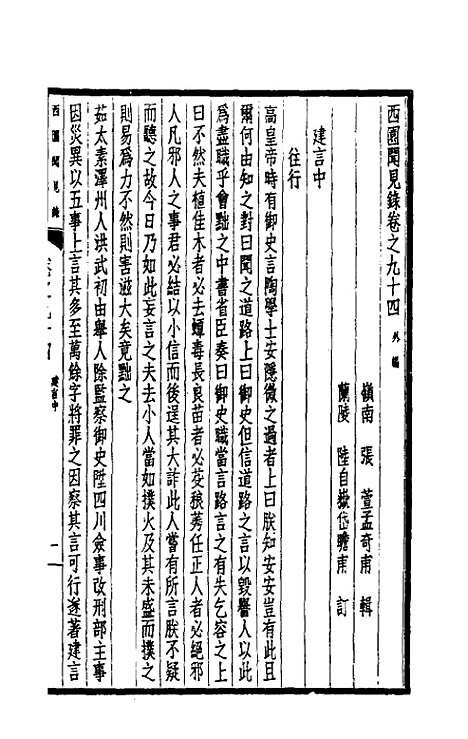 西園聞見錄卷之九十四 外編
嶺南 張 萱孟奇甫 輯
蘭陵 陸自嶽岱瞻甫 訂
建言中
往行
高皇帝時有御史言陶學士安隱微之過者上曰朕知安安豈有此且
爾何由知之對曰聞之道路上曰御史但信道路之言以毀譽人以此
爲盡職乎會黜之中書省臣奏曰御史職當言路言之有失乞容之上
曰不然夫植佳木者必去蠹毒長良苗者必芟稂莠任正人者必絕邪
人凡邪人之事君必結以小信而後逞其大詐此人嘗有所言朕不疑
而聽之故今日乃如此妄言之夫去小人當如撲火及其未盛而撲之
則易爲力不然則害滋大矣竟黜之
茹太素澤州人洪武初由舉人除監察御史陞四川僉事改刑部主事
因災異以五事上言其多至萬餘字將罪之因察其言可行遂著建言
西園聞見錄
卷之九十四 建言中
一